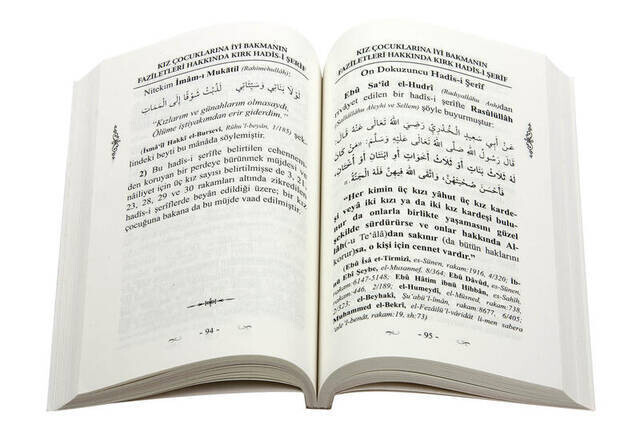 KIZ ÇOCUKLARINA İYİ BAKMANIN
FAZİLETLERİ HAKKINDA KIRK HADİS-İ ŞERİF
Nitekim İmâm-ı Mukātil (Rahimehullâh):
لَوْلَا بَنَاتِي وَسَيِّئَاتِي لَذُبْتُ شَوْقًا إِلَى الْمَمَاتِ
"Kızlarım ve günahlarım olmasaydı,
Ölüme iştiyakımdan erir giderdim."
(İsmâ'îl Hakkî el-Bursevî, Rûhu'l-beyân, 1/185) şek-
lindeki beyti bu mânâda söylemiştir.
2) Bu hadîs-i şerîfte belirtilen cehennem-
den koruyan bir perdeye bürünmek müjdesi ve
nâiliyet için üç kız sayısı belirtilmişse de 3, 21,
23, 28, 29 ve 30 rakamları altında zikredilen
hadîs-i şerîflerde beyân edildiği üzere; bir kız
çocuğuna bakana da bu müjde vaad edilmiştir.
- 94 -
KIZ ÇOCUKLARINA İYİ BAKMANIN
FAZİLETLERİ HAKKINDA KIRK HADİS-İ ŞERİF
On Dokuzuncu Hadîs-i Şerîf
Ebû Sa'îd el-Hudrî (Radıyallâhu Anh)dan
rivâyet edilen bir hadîs-i şerîfte Rasûlüllâh
(Sallâllâhu Aleyhi ve Sellem) şöyle buyurmuştur:
عَنْ أَبِي سَعِيدٍ الْخُدْرِيِّ رَضِيَ اللّٰهُ تَعَالَى عَنْهُ قَالَ
قَالَ رَسُولُ اللّٰهِ صَلَّى اللّٰهُ تَعَالَى عَلَيْهِ وَسَلَّمَ: مَنْ كَانَ
لَهُ ثَلَاثُ بَنَاتٍ أَوْ ثَلَاثُ أَخَوَاتٍ أَوِ ابْنَتَانِ أَوْ أُخْتَانِ،
فَأَحْسَنَ صُحْبَتَهُنَّ، وَاتَّقَى اللّٰهَ فِيهِنَّ فَلَهُ الْجَنَّةُ.
"Her kimin üç kızı yâhut üç kız karde-
şi veyâ iki kızı ya da iki kız kardeşi bulu-
nur da onlarla birlikte yaşamasını güzel
şekilde sürdürürse ve onlar hakkında Al-
lâh(-u Te'âlâ)dan sakınır (da bütün haklarını
korur)sa, o kişi için cennet vardır."
(Ebû Îsâ et-Tirmizî, es-Sünen, rakam:1916, 4/320; İb-
nü Ebî Şeybe, el-Musannef, 8/364; Ebû Dâvûd, es-Sünen,
rakam:6147-5148; Ebû Hâtim ibnü Hibbân, es-Sahîh,
rakam:446, 2/189; el-Humeydî, el-Müsned, rakam:738,
2/323; el-Beyhakî, Şu'abü'l-îmân, rakam:8677, 6/405;
Muhammed el-Bekrî, el-Fezâilü'l-vâridât li-men sabera
'ale'l-benât, rakam:19, sh:73)
- 95 -